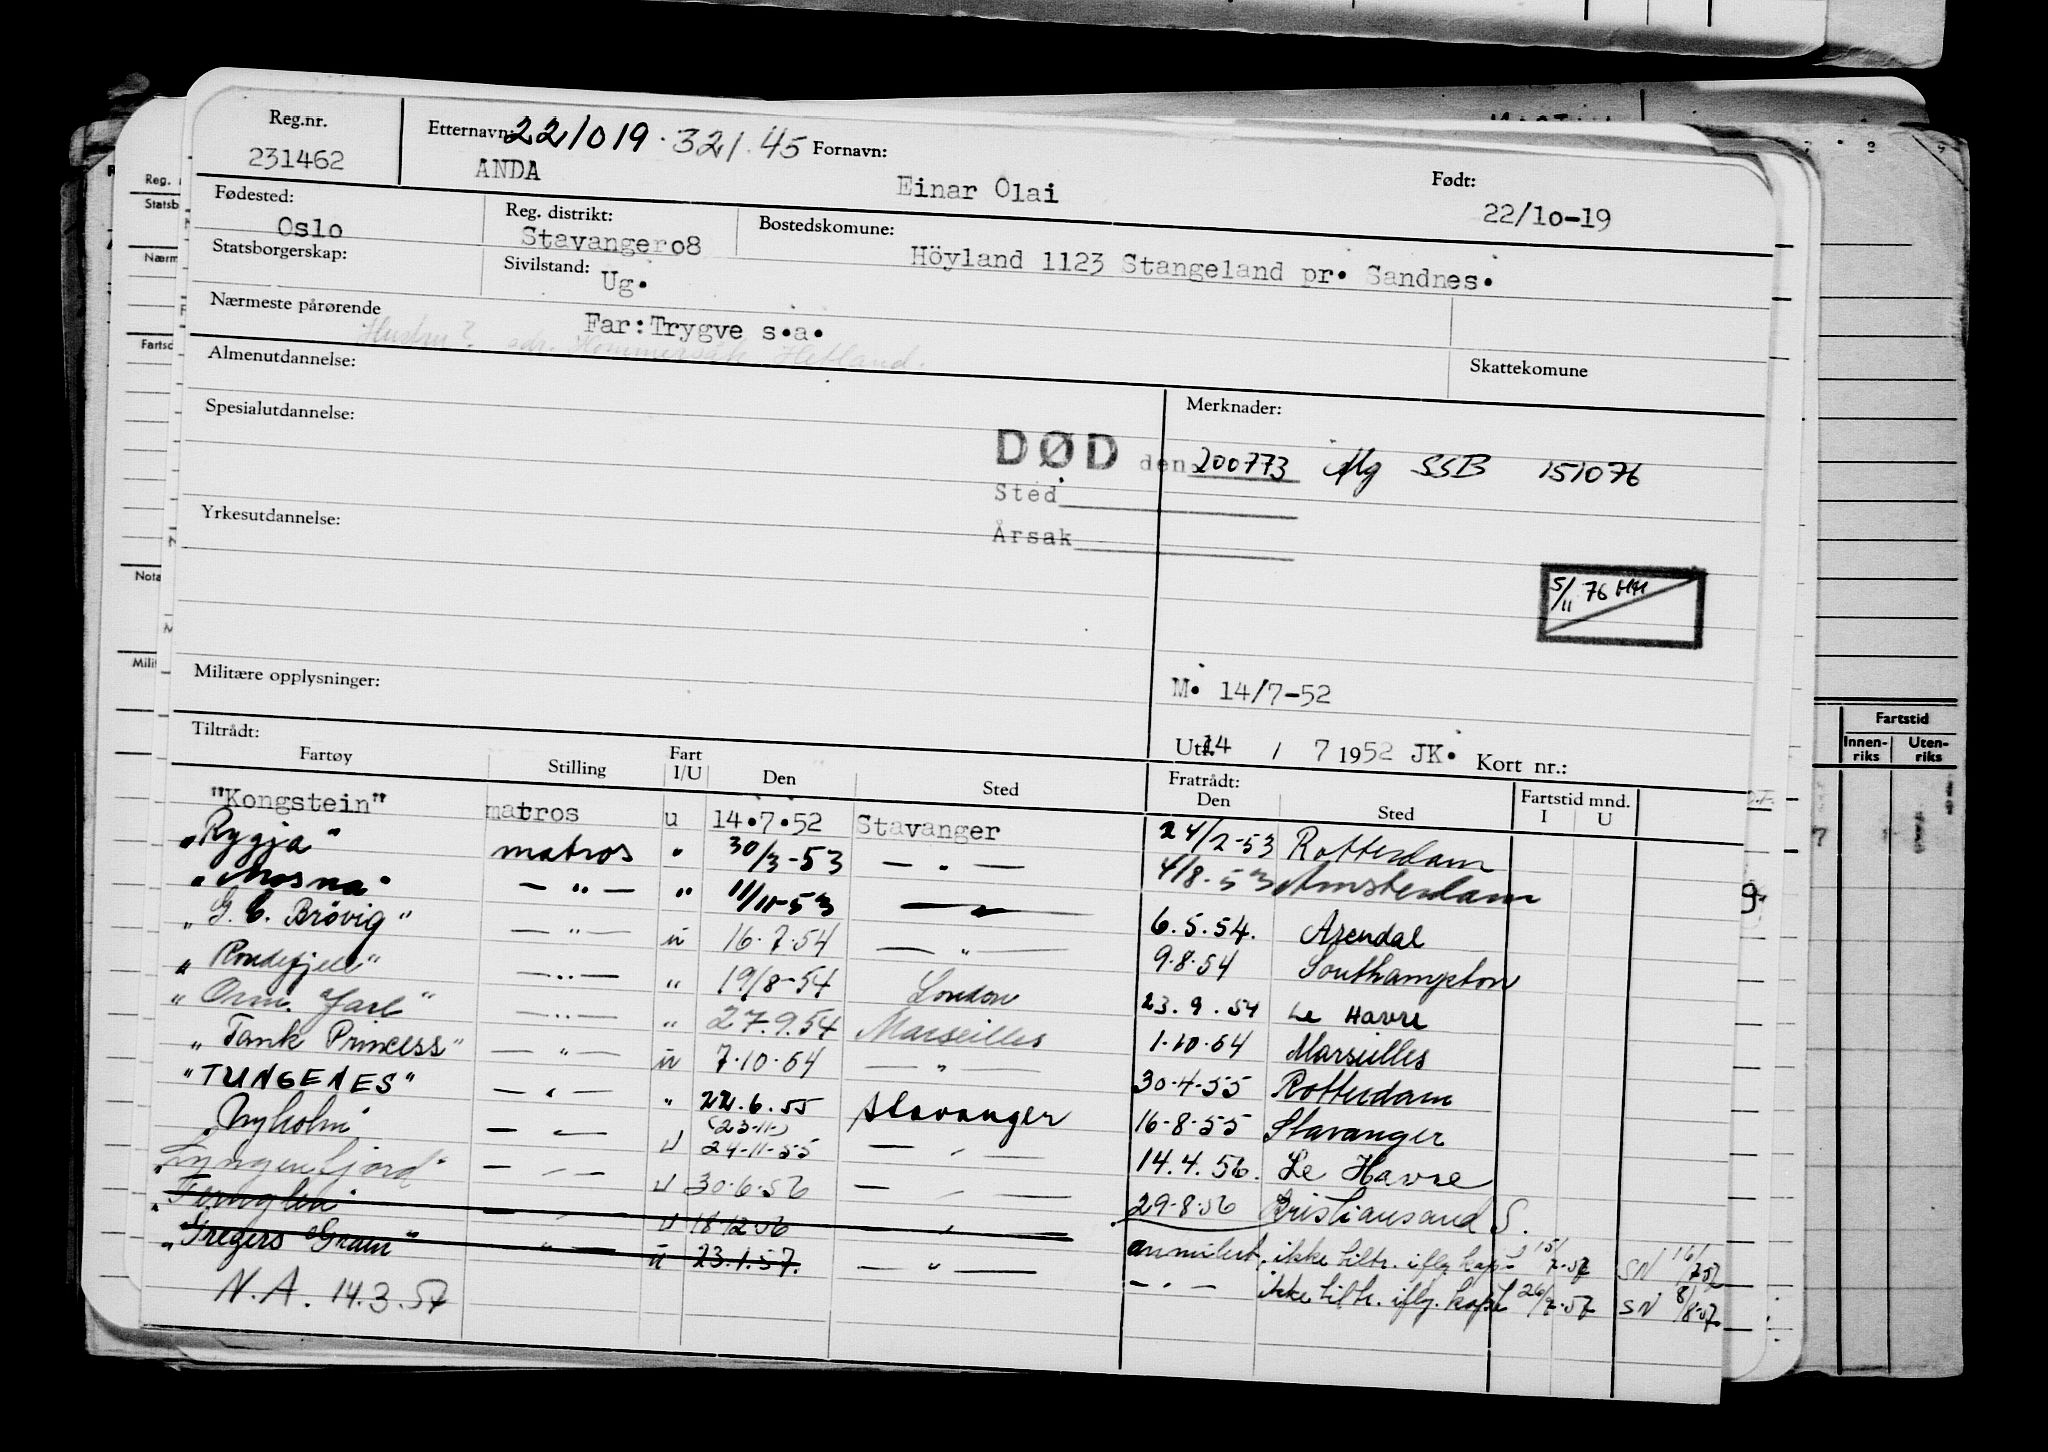 Reg.nr. Etternavn: 221019.321.45 Fornavn: Født:
231462 ANDA Einar Olai 22/10-19
Fødested: Reg. distrikt: Bostedskomune:
Oslo Stavanger08 Höyland 1123 Stangeland pr. Sandnes.
Statsborgerskap: Sivilstand: Ug.
Nærmeste pårørende Far:Trygve s.a.
Hustru? adr. Hommersåk, Hetland.
Almenutdannelse: Skattekomune
Spesialutdannelse: Merknader:
DØD den 200773 Mg SSB 151076
Sted
Årsak
Yrkesutdannelse:
5/11 76 HH
Militære opplysninger: M. 14/7-52
Utf. 14 / 7 1952 JK. Kort nr.:
Tiltrådt: Fratrådt:
Fartøy Stilling Fart I/U Den Sted Den Sted Fartstid mnd. I U
"Kongstein" matros u 14.7.52 Stavanger 24/2-53 Rotterdam
"Rygja" matros " 30/3-53 — " — 4/8-53 Amsterdam
"Mosna" — " — " 11/11-53 — " — 6.5.54. Arendal
"G. C. Brövig" — " — u 16.7.54 — " — 9.8.54 Southampton
"Rondefjell" — " — " 19/8-54 London 23.9.54 Le Havre
"Orm Jarl" — " — " 27.9.54 Marseilles 1.10.54 Marseilles
"Tank Princess" — " — u 7.10.54 — " — 30.4.55 Rotterdam
"TUNGENES" — " — " 22.6.55 Stavanger 16.8.55 Stavanger
"Nyholm" — " — u (23.11.) 24.11.55 — " — 14.4.56. Le Havre
"Lyngenfjord" — " — u 30.6.56 — " — 29.8.56 Kristiansand S.
"Fernglen" — " — u 18.12.56 — " — annulert. ikke tiltr. iflg. kapt 15/7-57 SN 16/7 57
"Gregers Gram" " u 23.1.57. — " — — " — ikke tiltr. iflg. kapt 26/7-57 SN 8/8-57.
N.A. 14.3.57
Reg.
Statsb
Nærm
Fartsc
Nota
Milit
Fartstid
Innen-riks Uten-riks